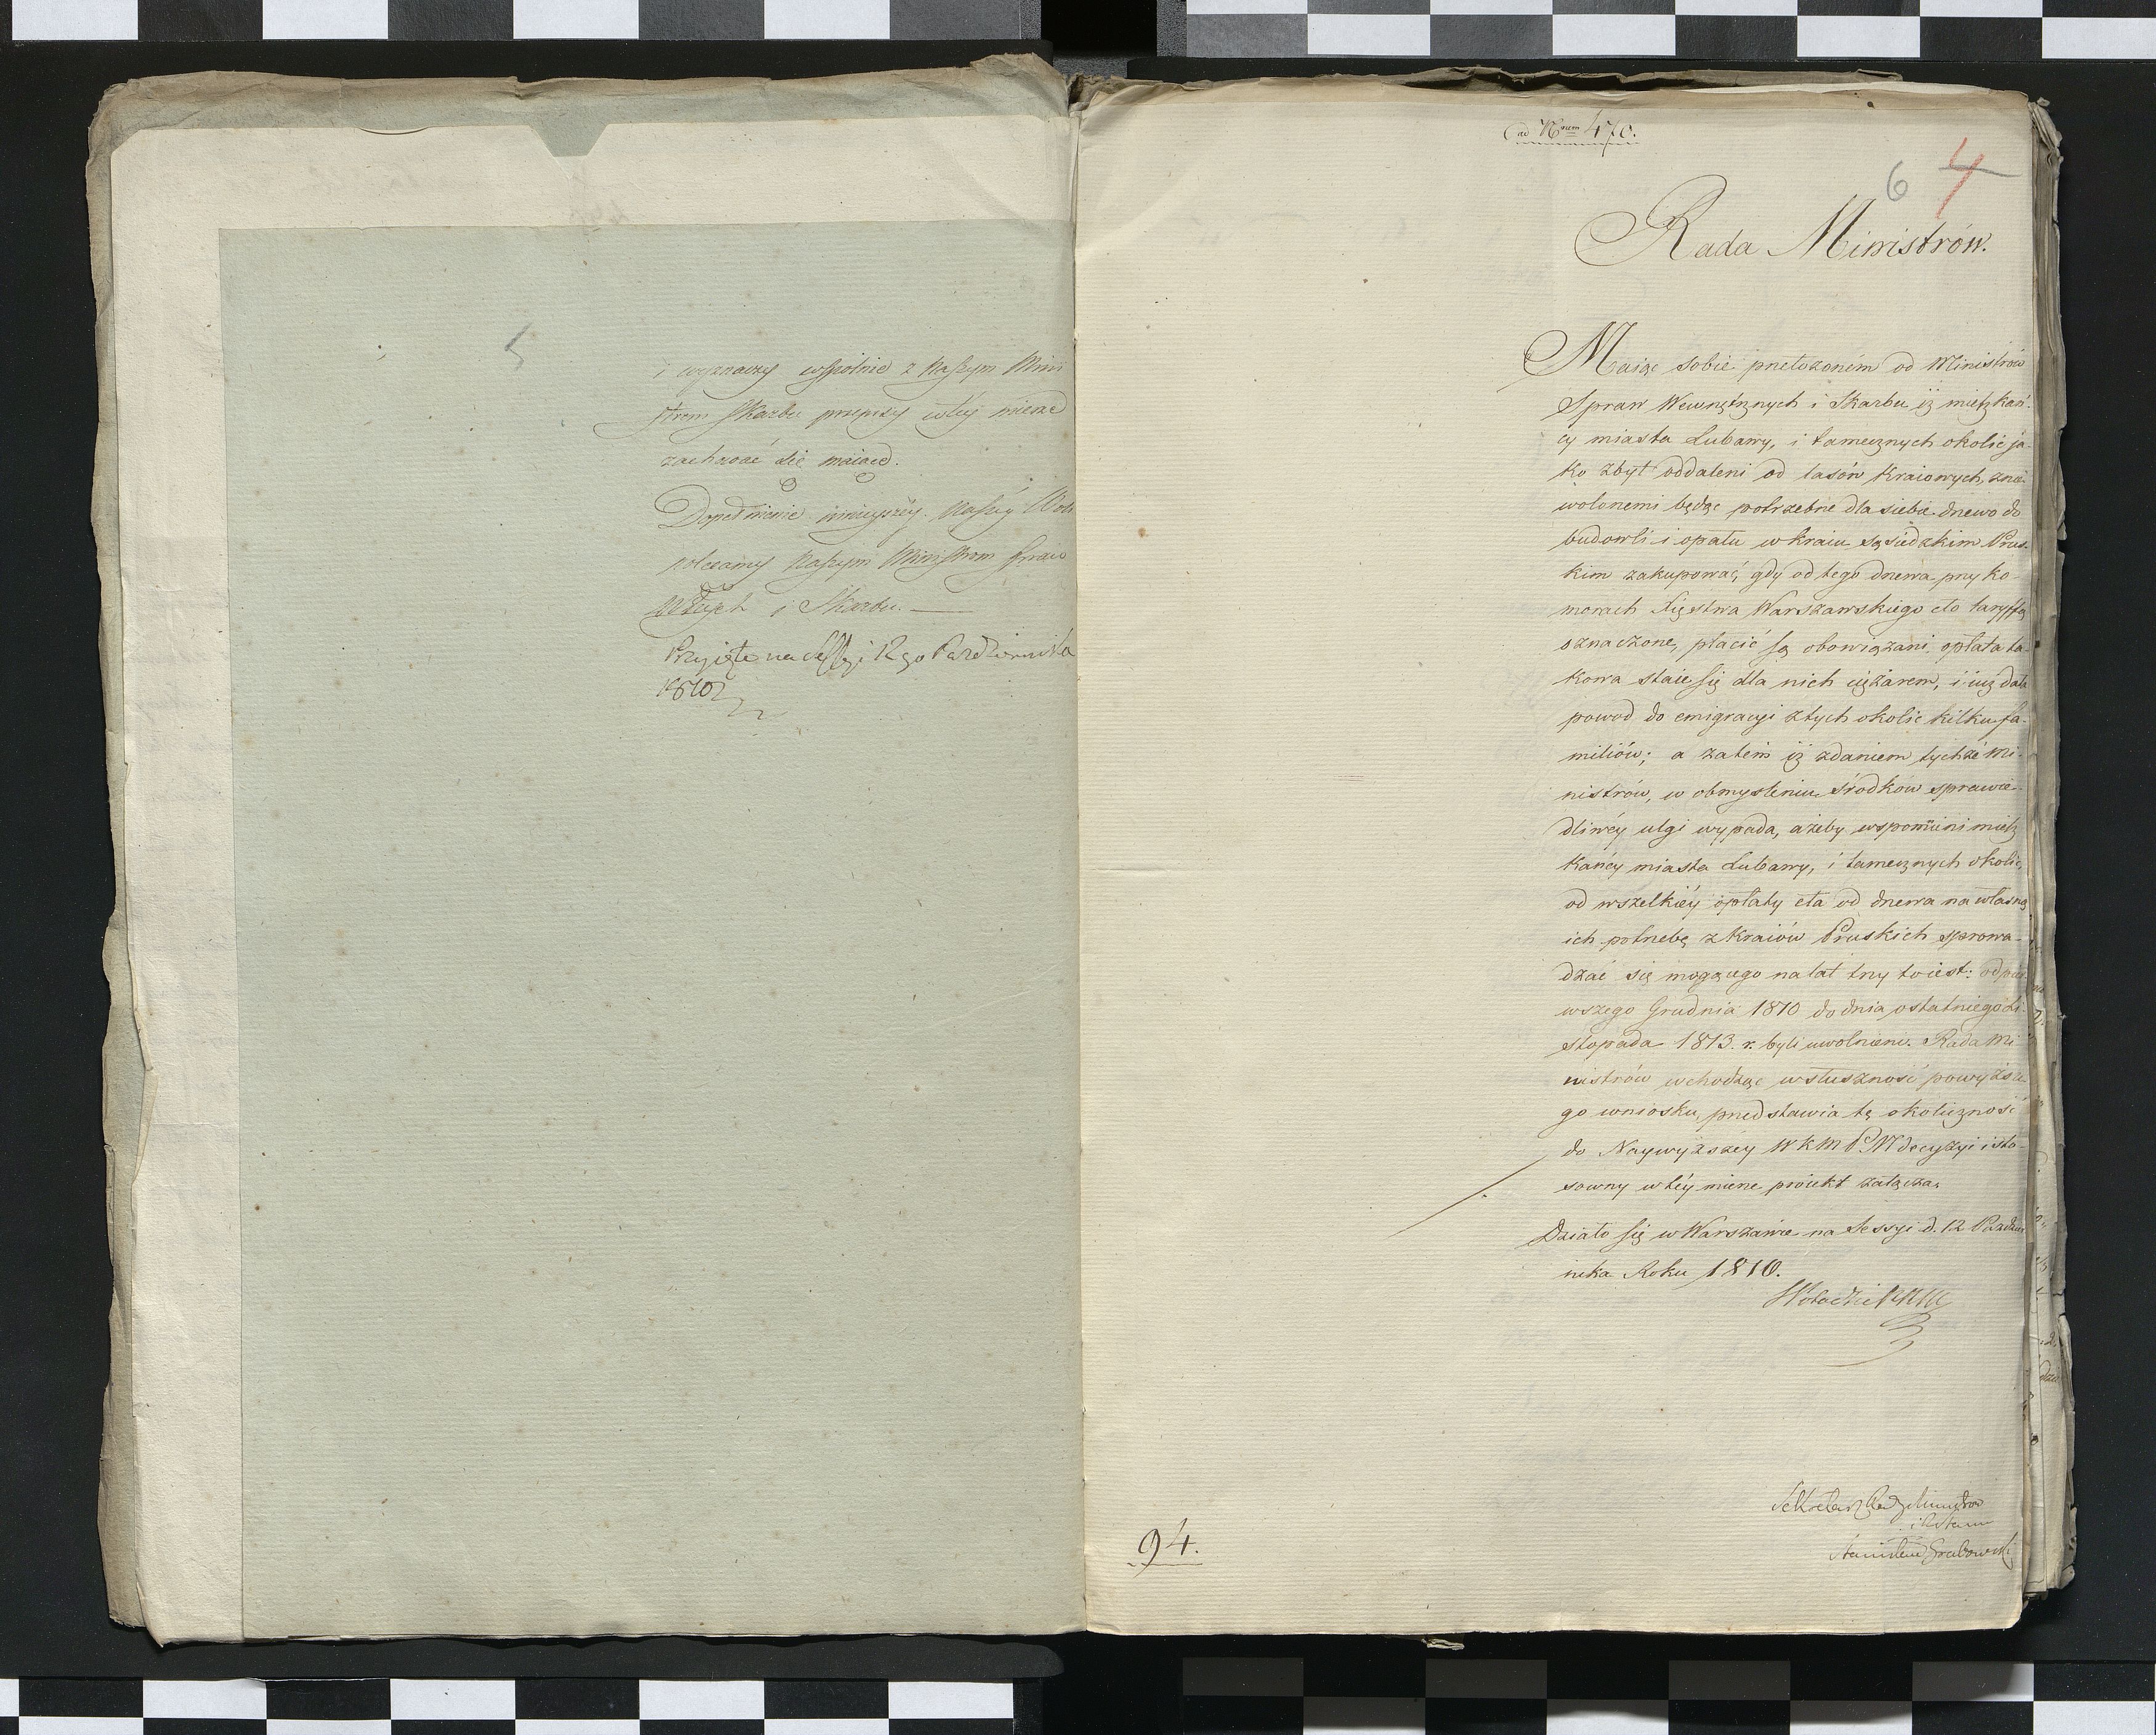 i wyznaczy wspolnie z Naszym Mini
strem Skarbu przepisy wtey mierze
zachować się maiące.
Dopełnienie ninieyszey Naszey Woli
polecamy Naszym Ministrom Spraw
Wtrzch i Skarbu.
Przyięte na Sessyi 12go Października
1810
ad Nrum 470.
6 4
Rada Ministrów.
Maiąc sobie przełożoném od Ministrów
Spraw Wewnętrznych i Skarbu iż mieszkań-
cy miasta Lubawy, i tamecznych okolic ja-
ko zbyt oddaleni od lasów kraiowych, znie-
wolonemi będąc potrzebne dla siebie drzewo do
budowli i opału w kraiu sąsiedzkim Prus-
kim zakupować, gdy od tego drzewa przy ko-
morach Xięstwa Warszawskiego cło taryffą
oznaczone, płacić są obowiązani, opłata ta-
kowa staie się dla nich ciężarem, i iuż dała
powod do emigracyi z tych okolic kilku fa-
miliów; a zatém iż zdaniem tychże Mi-
nistrów, w obmyśleniu środków sprawie-
dliwéy ulgi wypada, ażeby wspomnieni miesz
kańcy miasta Lubawy, i tamecznych okolic,
od wszelkiéy opłaty cła od drzewa na własną
ich potrzebę z kraiów Pruskich sprowa-
dzać się mogącego na lat trzy to iest: od pier
wszego Grudnia 1810 do dnia ostatniego Li-
stopada 1813. r. byli uwolnieni. Rada Mi
nistrów wchodząc w słuszność powyższe-
go wniosku, przedstawia tę okoliczność
do Naywyższey WKM PNM decyzyi i sto-
sowny w téy mierze proiekt załącza.
Działo się w Warszawie na Sessyi d. 12 Paździer
nika Roku 1810.
Sekretarz Rady Ministrów
i Stanu
Stanisław Grabowski
94.